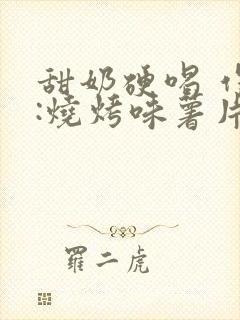 甜奶硬唱
:燒烤味薯片
羅二虎